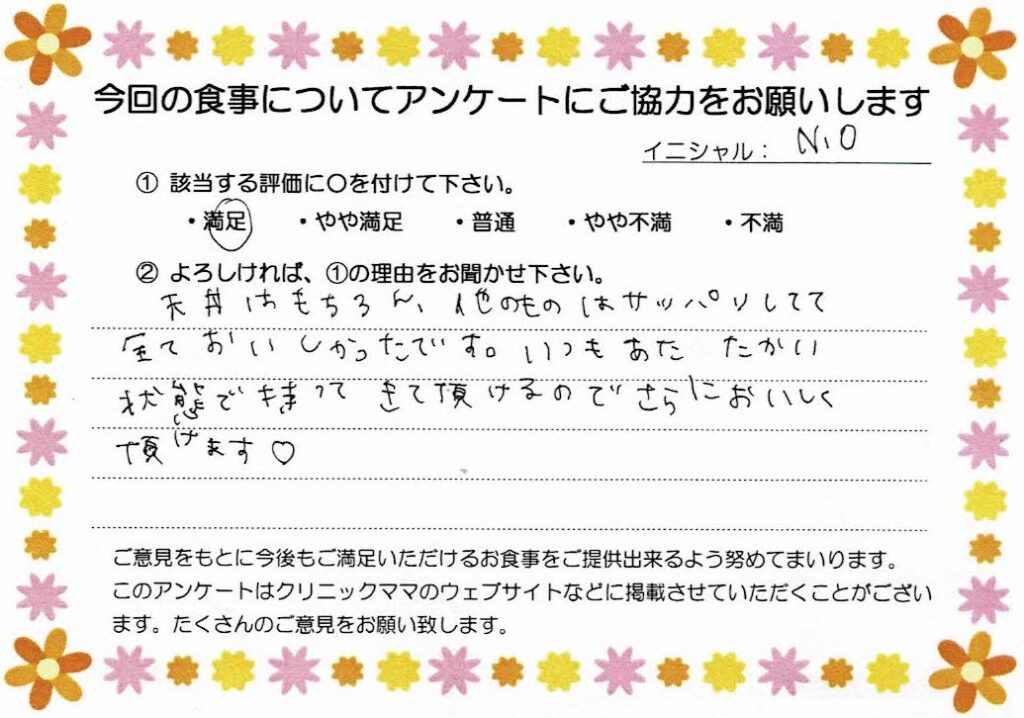 今回の食事についてアンケートにご協力をお願いします
イニシャル： N.O
① 該当する評価に〇を付けて下さい。
・満足 ・やや満足 ・普通 ・やや不満 ・不満
② よろしければ、①の理由をお聞かせ下さい。
天丼はもちろん、他のものはサッパリしてて
全ておいしかったです。いつもあたたかい
状態で持ってきて頂けるのでさらにおいしく
頂けます♡
ご意見をもとに今後もご満足いただけるお食事をご提供出来るよう努めてまいります。
このアンケートはクリニックママのウェブサイトなどに掲載させていただくことがござい
ます。たくさんのご意見をお願い致します。